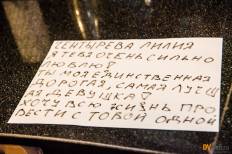 ЧЕНТЫРЕВА ЛИЛИЯ
Я ТЕБЯ ОЧЕНЬ СИЛЬНО
ЛЮБЛЮ!
ТЫ МОЯ ЕДИНСТВЕННАЯ
ДОРОГАЯ, САМАЯ ЛУЧШ
АЯ ДЕВУШКА!
ХОЧУ ВСЮ ЖИЗНЬ ПРО
ВЕСТИ С ТОБОЙ ОДНОЙ